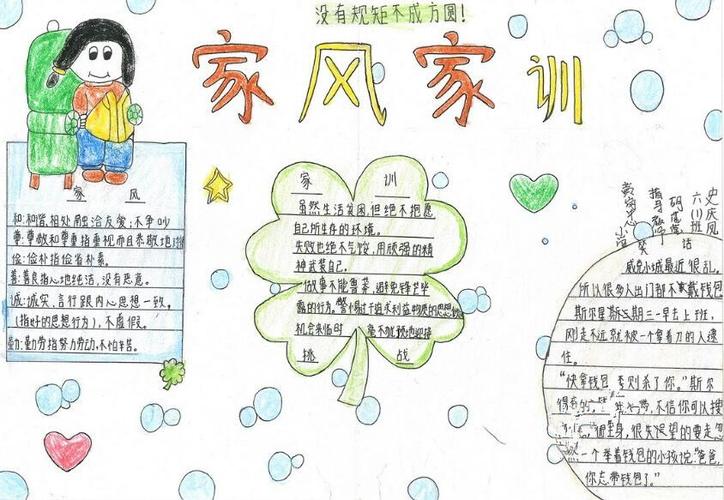 没有规矩不成方圆!
家风家训
家 风
和:和谐,相处融洽友爱;不争吵
尊:尊敬和尊重指重视而且恭敬地
俭:俭朴指俭省朴素。
善:善良指心地纯洁,没有恶意。
诚:诚实,言行跟内心思想一致。
(指好的思想行为),不虚假。
勤:勤劳指努力劳动,不怕辛苦。
家 训
虽然生活贫困,但绝不抱怨
自己所生存的环境。
失败也绝不气馁,用顽强的精
神武装自己。
做事不能鲁莽,避免锋芒毕
露的行为。
机会来临时
挑 战
史庆凤
六(1)班
指导教师
笑 话
威克小城最近很乱,
所以很多人出门都不敢戴钱包
斯尔星期三一早去上班,
刚走不远就被一个拿着刀的人逮
住。
“快拿钱包,否则杀了你。”斯尔
不信你可以搜
很失望的要走,忽
一个举着钱包的小孩说:“爸爸,
你忘带钱包了。”